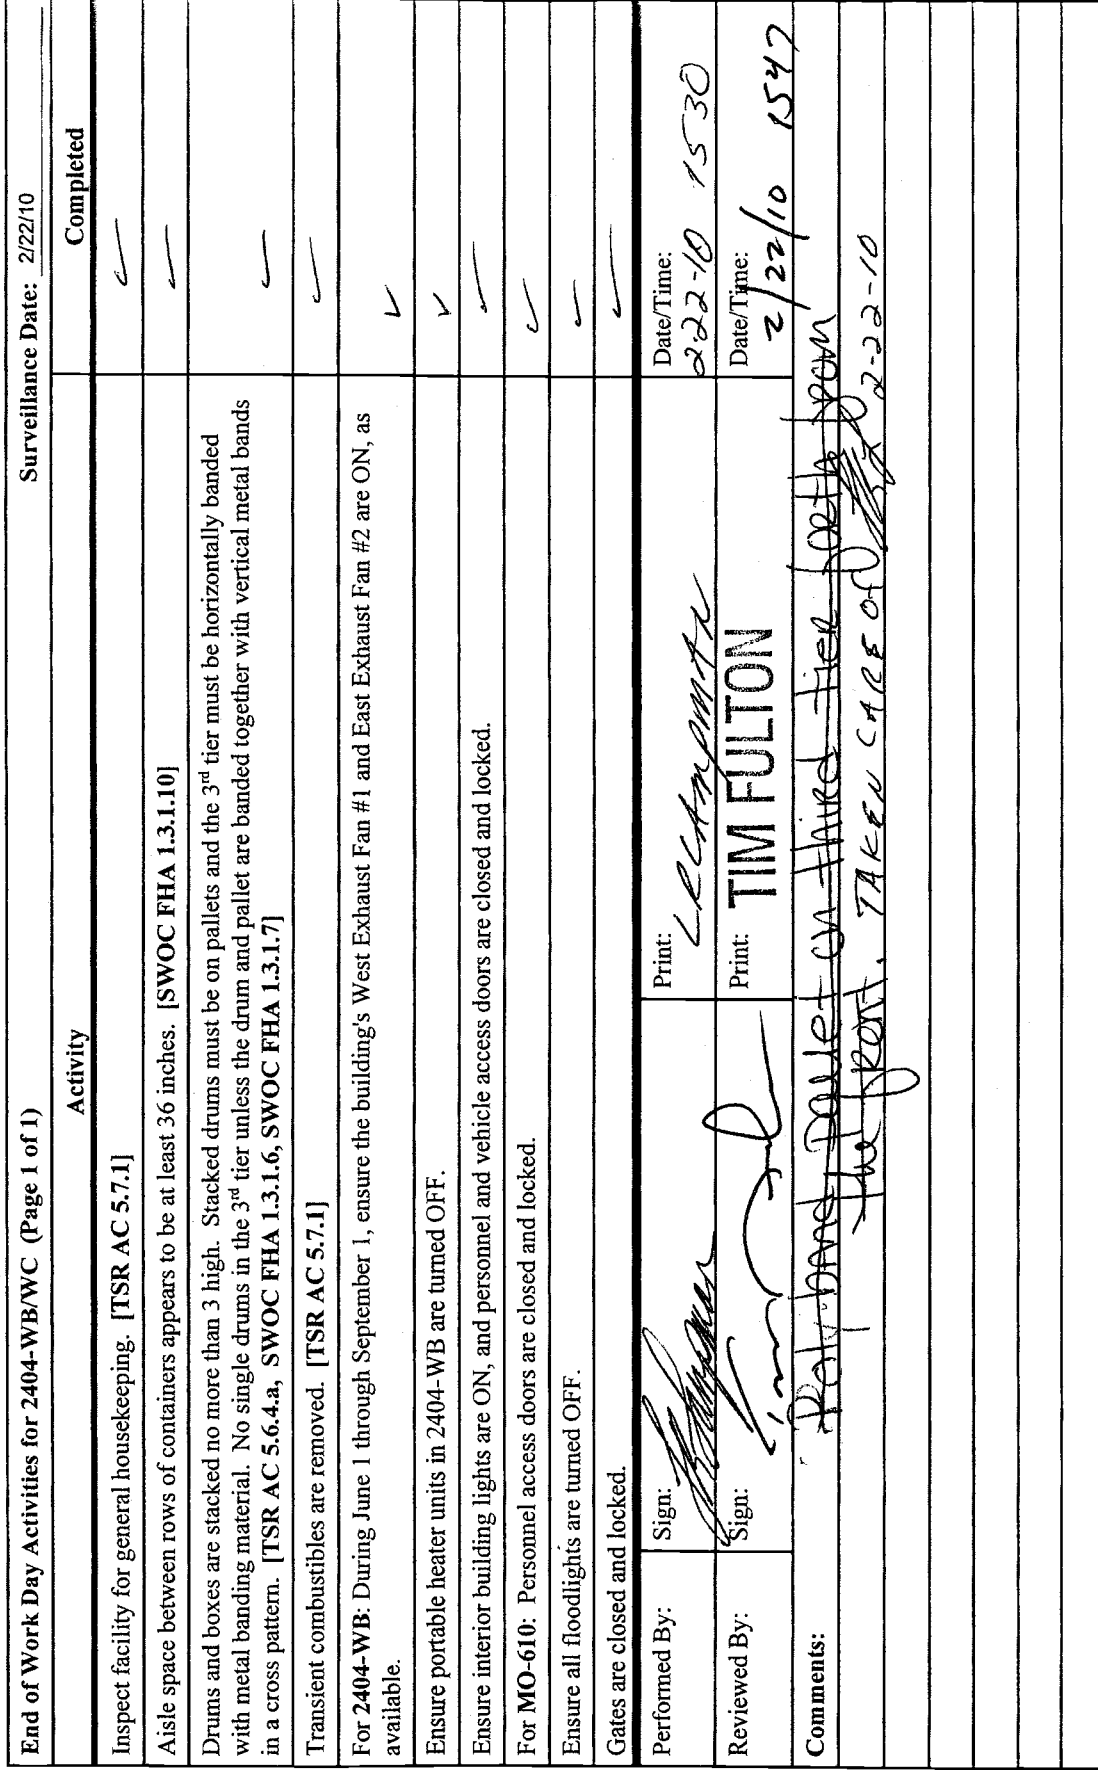 End of Work Day Activities for 2404-WB/WC (Page 1 of 1) Surveillance Date: 2/22/10
Activity Completed
Inspect facility for general housekeeping. [TSR AC 5.7.1] ✓
Aisle space between rows of containers appears to be at least 36 inches. [SWOC FHA 1.3.1.10] ✓
Drums and boxes are stacked no more than 3 high. Stacked drums must be on pallets and the 3rd tier must be horizontally banded
with metal banding material. No single drums in the 3rd tier unless the drum and pallet are banded together with vertical metal bands
in a cross pattern. [TSR AC 5.6.4.a, SWOC FHA 1.3.1.6, SWOC FHA 1.3.1.7] ✓
Transient combustibles are removed. [TSR AC 5.7.1] ✓
For 2404-WB: During June 1 through September 1, ensure the building's West Exhaust Fan #1 and East Exhaust Fan #2 are ON, as
available. ✓
Ensure portable heater units in 2404-WB are turned OFF. ✓
Ensure interior building lights are ON, and personnel and vehicle access doors are closed and locked. ✓
For MO-610: Personnel access doors are closed and locked. ✓
Ensure all floodlights are turned OFF. ✓
Gates are closed and locked. ✓
Performed By: Sign: Print: Date/Time:
2-22-10 1530
Reviewed By: Sign: Print: TIM FULTON Date/Time:
2/22/10 1547
Comments: band pallet on third tier
the front. TAKEN CARE OF 2-22-10